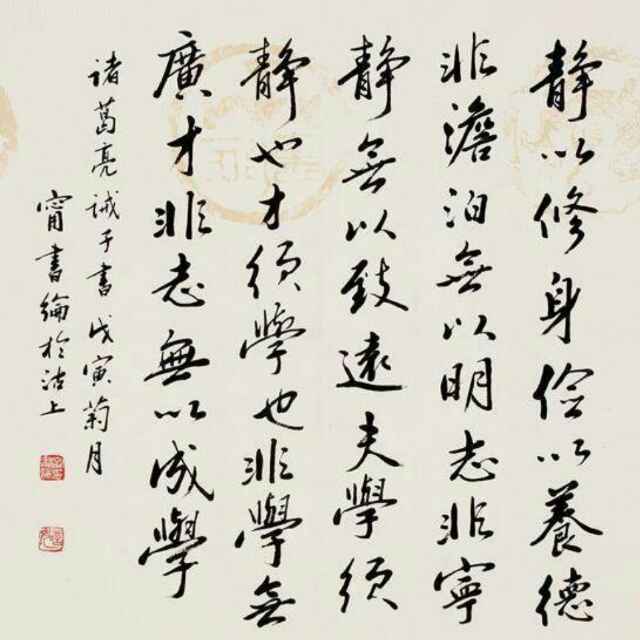 静以修身儉以養德
非澹泊無以明志非寧
静無以致遠夫學須
静也才須學也非學無
廣才非志無以成學
諸葛亮誡子書戊寅菊月
甯書綸於沽上